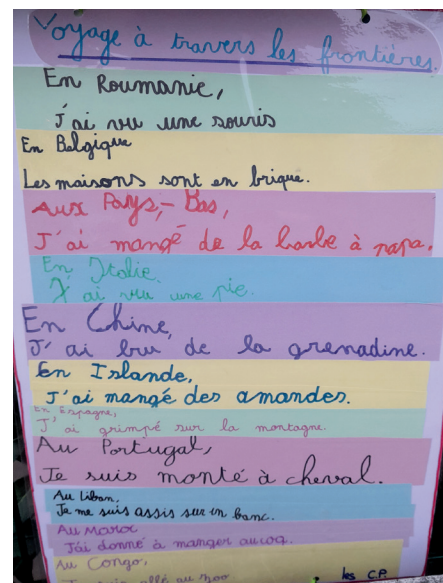 Voyage à travers les frontières.
En Roumanie,
J'ai vu une souris
En Belgique
Les maisons sont en brique.
Aux Pays,-Bas,
J'ai mangé de la barbe à papa.
En Italie,
J'ai vu une pie.
En Chine,
J'ai bu de la grenadine.
En Islande,
J'ai mangé des amandes.
En Espagne,
J'ai grimpé sur la montagne.
Au Portugal,
Je suis monté à cheval.
Au Liban,
Je me suis assis sur un banc.
Au Maroc
J'ai donné à manger au coq.
Au Congo,
Je suis allé au zoo
les CP